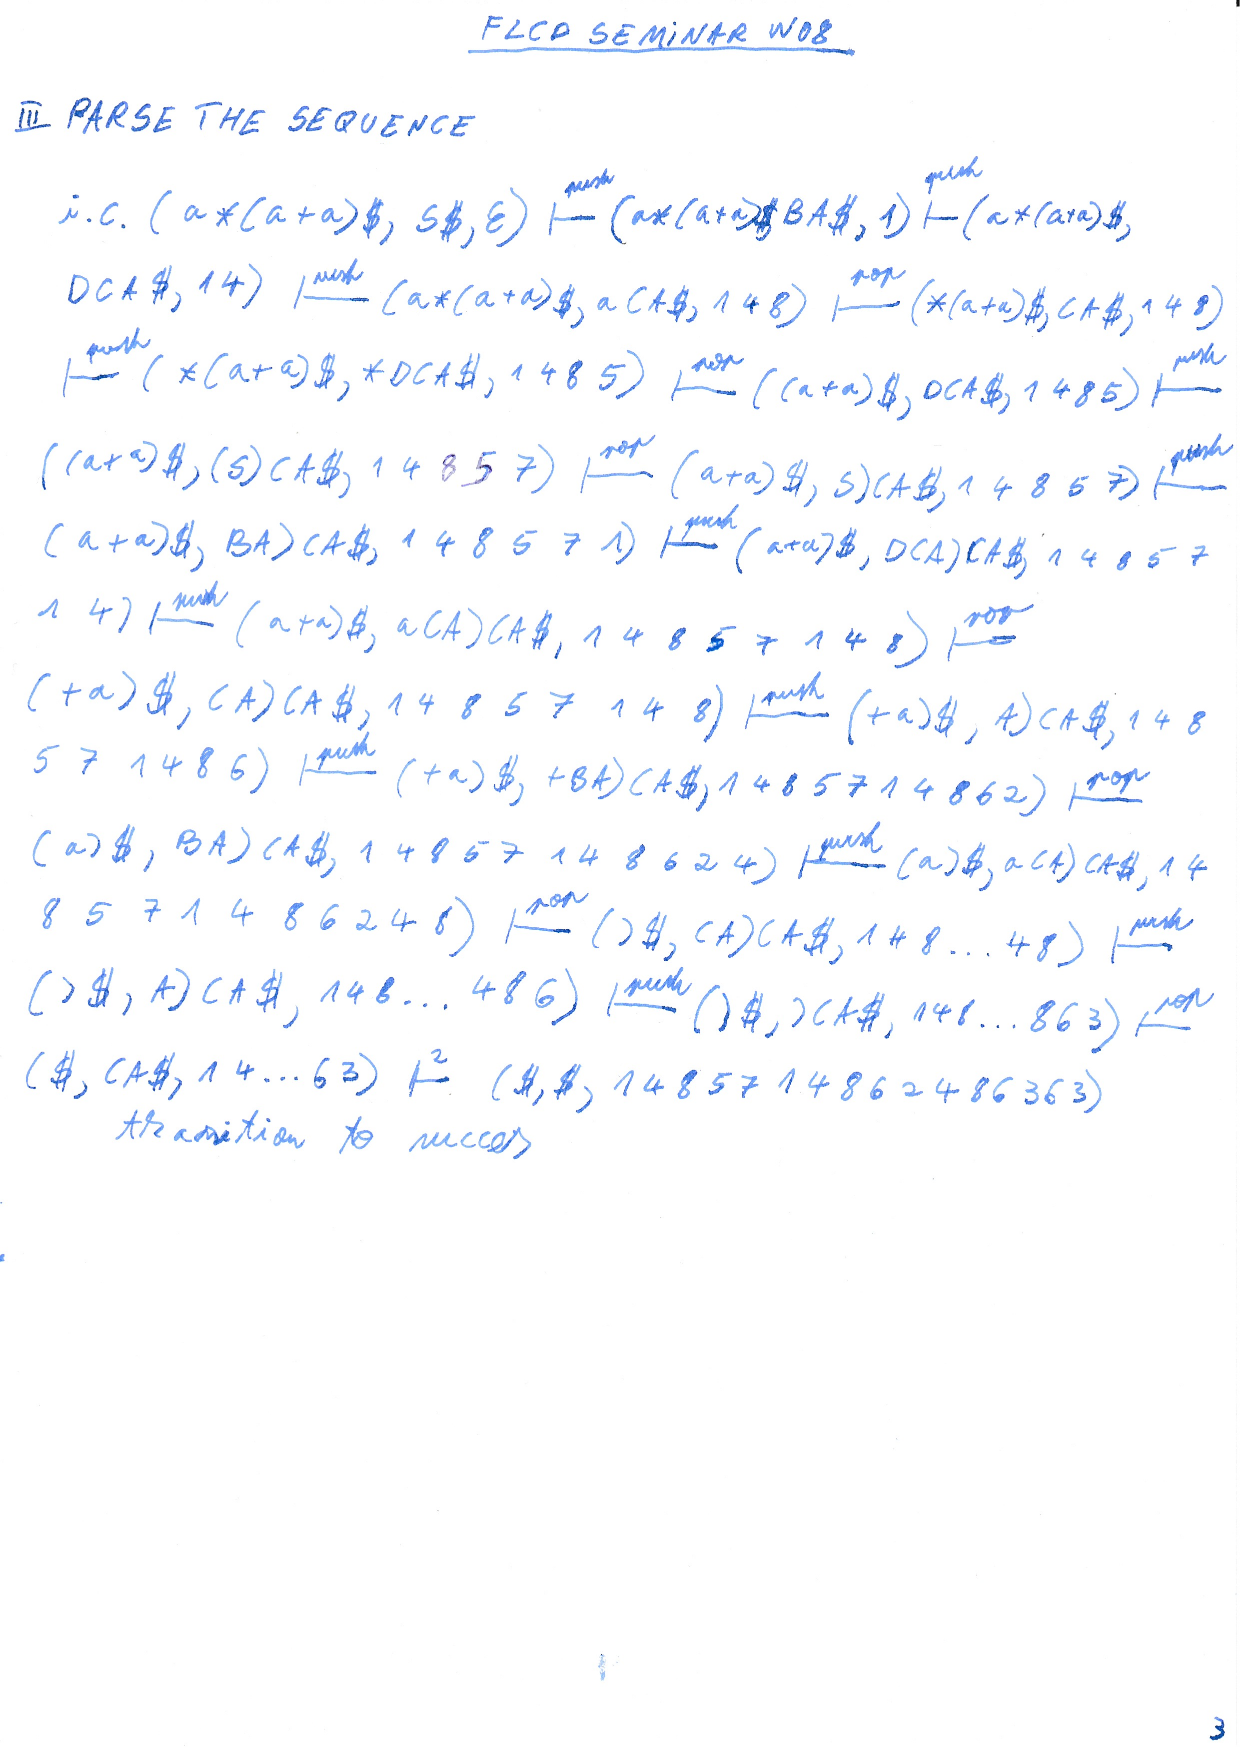 FLCD SEMINAR W08
III PARSE THE SEQUENCE
i.c. (a*(a+a)$, S$, ε) ⊢push (a*(a+a)$, BA$, 1) ⊢push (a*(a+a)$,
DCA$, 14) ⊢push (a*(a+a)$, aCA$, 148) ⊢pop (*(a+a)$, CA$, 148)
⊢push (*(a+a)$, *DCA$, 1485) ⊢pop ((a+a)$, DCA$, 1485) ⊢push
((a+a)$, (S)CA$, 14857) ⊢pop (a+a)$, S)CA$, 14857) ⊢push
(a+a)$, BA)CA$, 148571) ⊢push (a+a)$, DCA)CA$, 14857
14) ⊢push (a+a)$, aCA)CA$, 14857148) ⊢pop
(+a)$, CA)CA$, 14857148) ⊢push (+a)$, A)CA$, 148
571486) ⊢push (+a)$, +BA)CA$, 1485714862) ⊢pop
(a)$, BA)CA$, 14857148624) ⊢push (a)$, aCA)CA$, 14
8571486248) ⊢pop ()$, CA)CA$, 148...48) ⊢push
()$, A)CA$, 148...486) ⊢push ()$, )CA$, 148...863) ⊢pop
($, CA$, 14...63) ⊢2 ($, $, 1485714862486363)
transition to succes
3